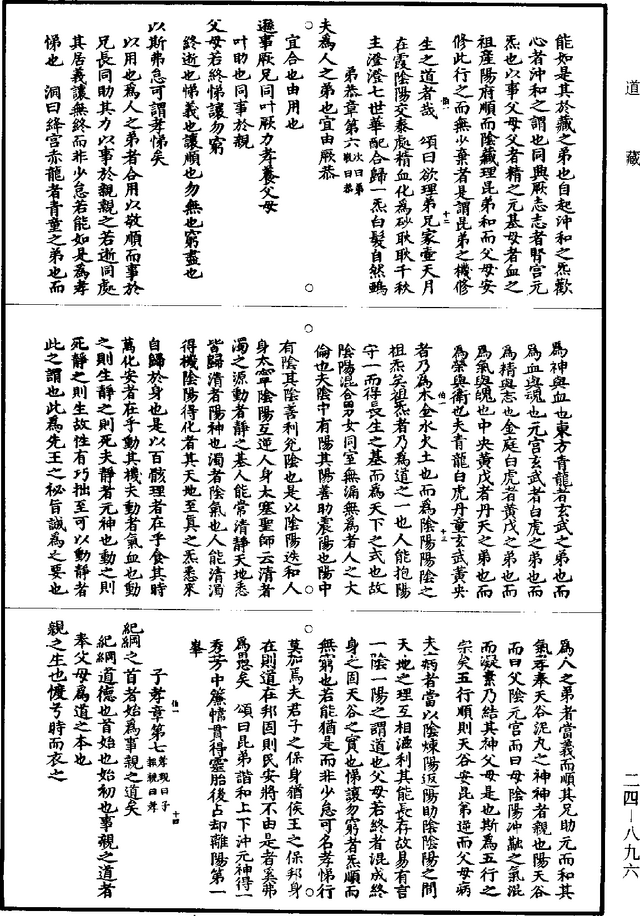 道藏
能如是其於藏之弟也自起沖和之炁歡
心者沖和之謂也同興厥志志者腎宮元
炁也以事父母父者精之元基母者血之
祖產陽府順而陰藏理昆弟和而父母安
修此行之而無少棄者是謂昆弟之機修
生之道者哉　頌曰欲理弟兄家壺天月
在霞陰陽交泰處精血化為砂耿耿千秋
主澄澄七世華配合歸一炁白髮自然鵶
弟恭章第六次曰弟敬曰恭
夫為人之弟也宜由厥恭
宜合也由用也
遜事厥兄同叶厥力孝養父母
叶助也同事於親
父母若終悌讓勿窮
終逝也悌義也讓順也勿無也窮盡也
以斯弗怠可謂孝悌矣
以用也為人之弟者合用以敬順而事於
兄長同助其力以事於親親之若逝同處
其居義讓無終而非少怠若能如是為孝
悌也　洞曰絳宮赤龍者青童之弟也而
為神與血也東方青龍者玄武之弟也而
為血與魂也元宮玄武者白虎之弟也而
為精與志也金庭白虎者黃戊之弟也而
為氣與魄也中央黃戊者丹天之弟也而
為榮與衛也夫青龍白虎丹童玄武黃央
者乃為木金水火土也而為陰陽陰陽之
祖炁矣祖炁者乃為道之一也人能抱陽
守一而得長生之基而為天下之式也故
陰陽混合男女同室無漏無為者人之大
倫也夫陰中有陽其陽善助震陽也陽中
有陰其陰善利兌陰也是以陰陽迭和人
身太寧陰陽互逆人身太塞聖師云清者
濁之源動者靜之基人能常清靜天地悉
皆歸清者陽神也濁者陰氣也人能清濁
得機陰陽得化者其天地至真之炁悉來
自歸於身也是以百骸理者在乎食其時
萬化安者在乎動其機夫動者氣血也動
之則生靜之則死夫靜者元神也動之則
死靜之則生故性有巧拙至可以動靜者
此之謂也此為先王之秘旨誠為之要也
為人之弟者當義而順其兄助元而和其
氣孝奉天谷泥丸之神神者親也陽天谷
而曰父陰元宮而曰母陰陽沖融之氣混
而凝素乃結其神父母是也斯為五行之
宗矣五行順則天谷安昆弟逆而父母病
夫病者當以陰煉陽返陽助陰陰陽之間
天地之理互相濟利其能長存故易有言
一陰一陽之謂道也父母若終者混成終
身之固天谷之實也悌讓勿窮者炁順而
無窮也若能猶是而非少怠可名孝悌行
莫加焉夫君子之保身猶侯王之保邦身
在則道在邦固則民安將不由是者奚弗
為思矣　頌曰昆弟諧和上下沖元神得一
秀芳中簾帷貫得靈胎後占却離陽第一
峯
子孝章第七奉親曰子報親曰孝
紀綱之首者始為事親之道矣
紀綱道德也首始也始初也事親之道者
奉父母為道之本也
親之生也懷兮時而衣之
二四—八九六